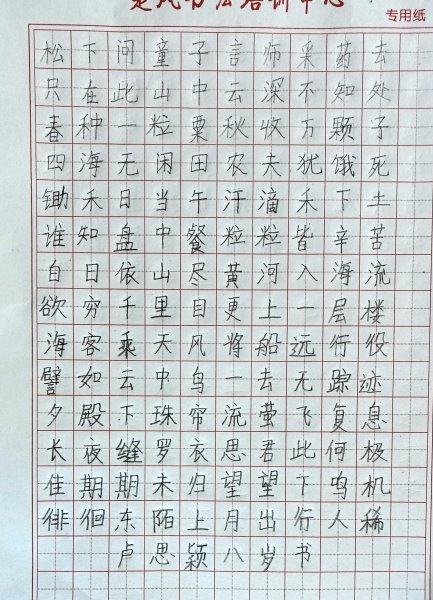 楚风书法培训中心
专用纸
松下问童子言师采药去
只在此山中云深不知处
春种一粒粟秋收万颗子
四海无闲田农夫犹饿死
锄禾日当午汗滴禾下土
谁知盘中餐粒粒皆辛苦
白日依山尽黄河入海流
欲穷千里目更上一层楼
海客乘天风将船远行役
譬如云中鸟一去无踪迹
夕殿下珠帘流萤飞复息
长夜缝罗衣思君此何极
佳期期未归望望下鸣机
徘徊东陌上月出行人稀
卢思颖八岁书